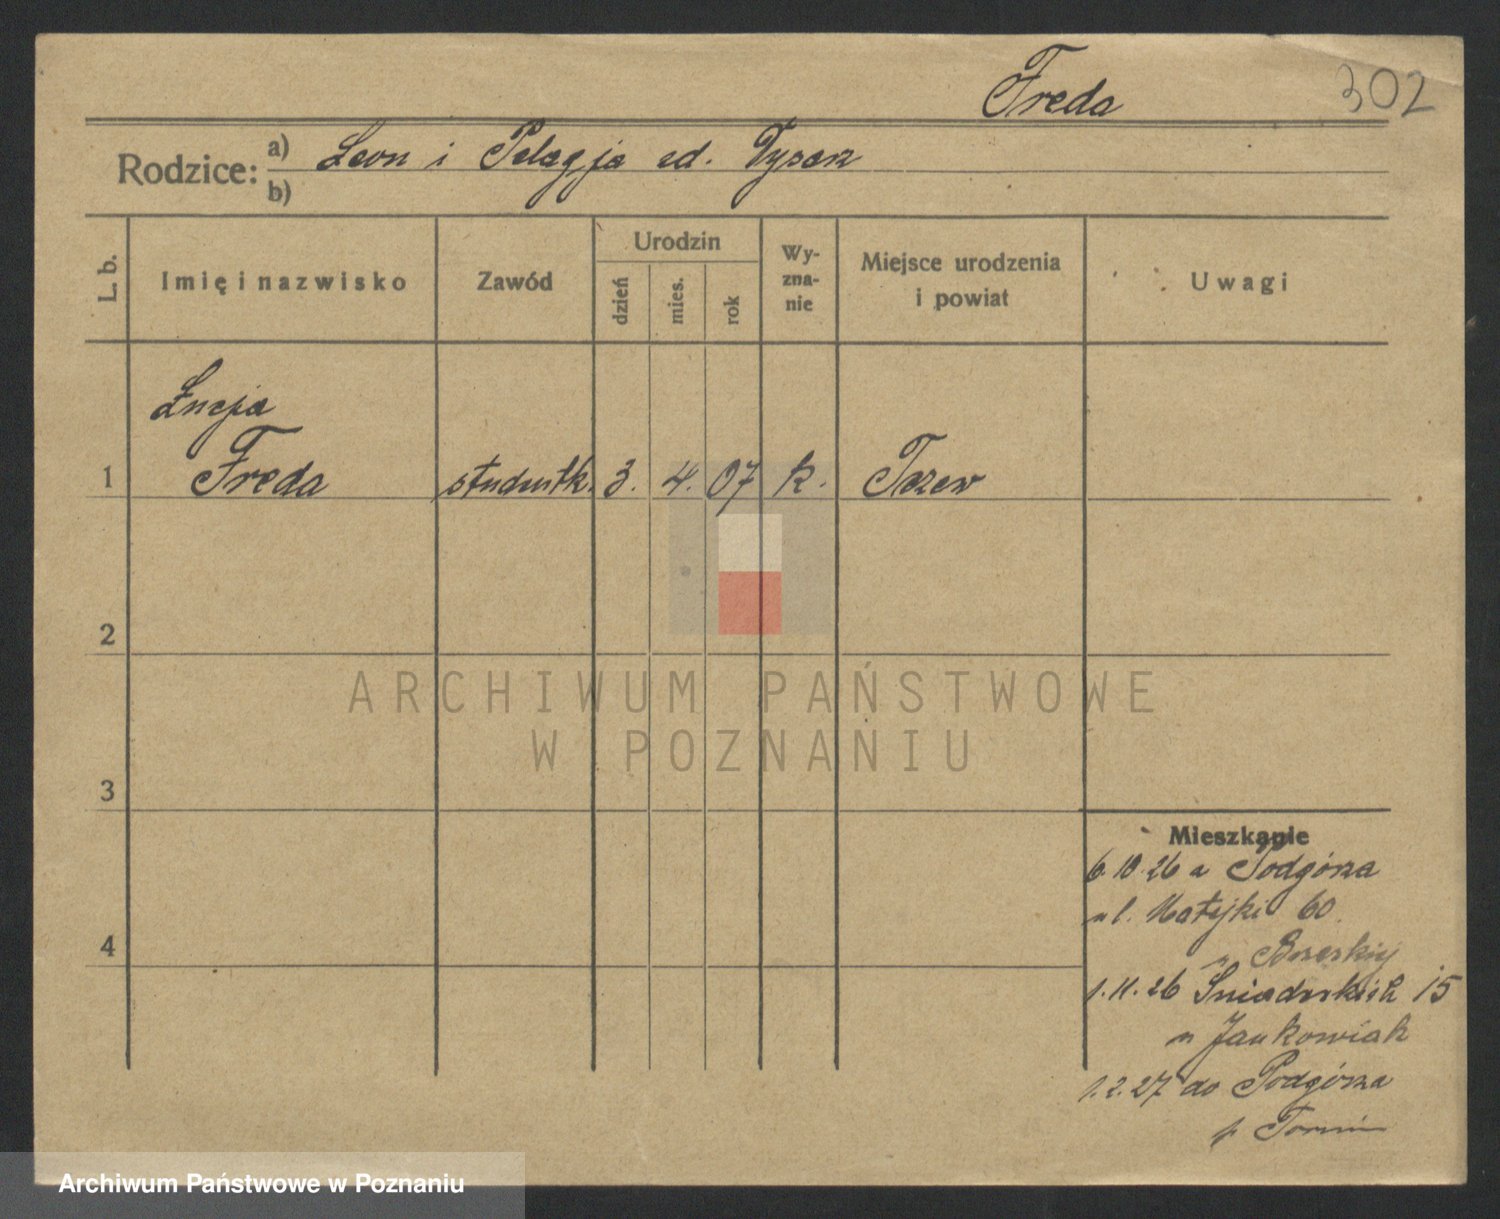 Freda
302
Rodzice: a) Leon i Pelagja zd. Dysarz
b)
L. b.
Imię i nazwisko
Zawód
Urodzin
dzień
mies.
rok
Wy-
zna-
nie
Miejsce urodzenia
i powiat
Uwagi
Łucja
1 Freda studentk. 3. 4. 07 k. Tczew
2
3
4
Mieszkanie
6.10.26 z Podgórza
ul. Matejki 60
1.11.26 Śniadeckich 15
u Jankowiak
1.2.27 do Podgórza
p. Toruń
ARCHIWUM PAŃSTWOWE
W POZNANIU
Archiwum Państwowe w Poznaniu